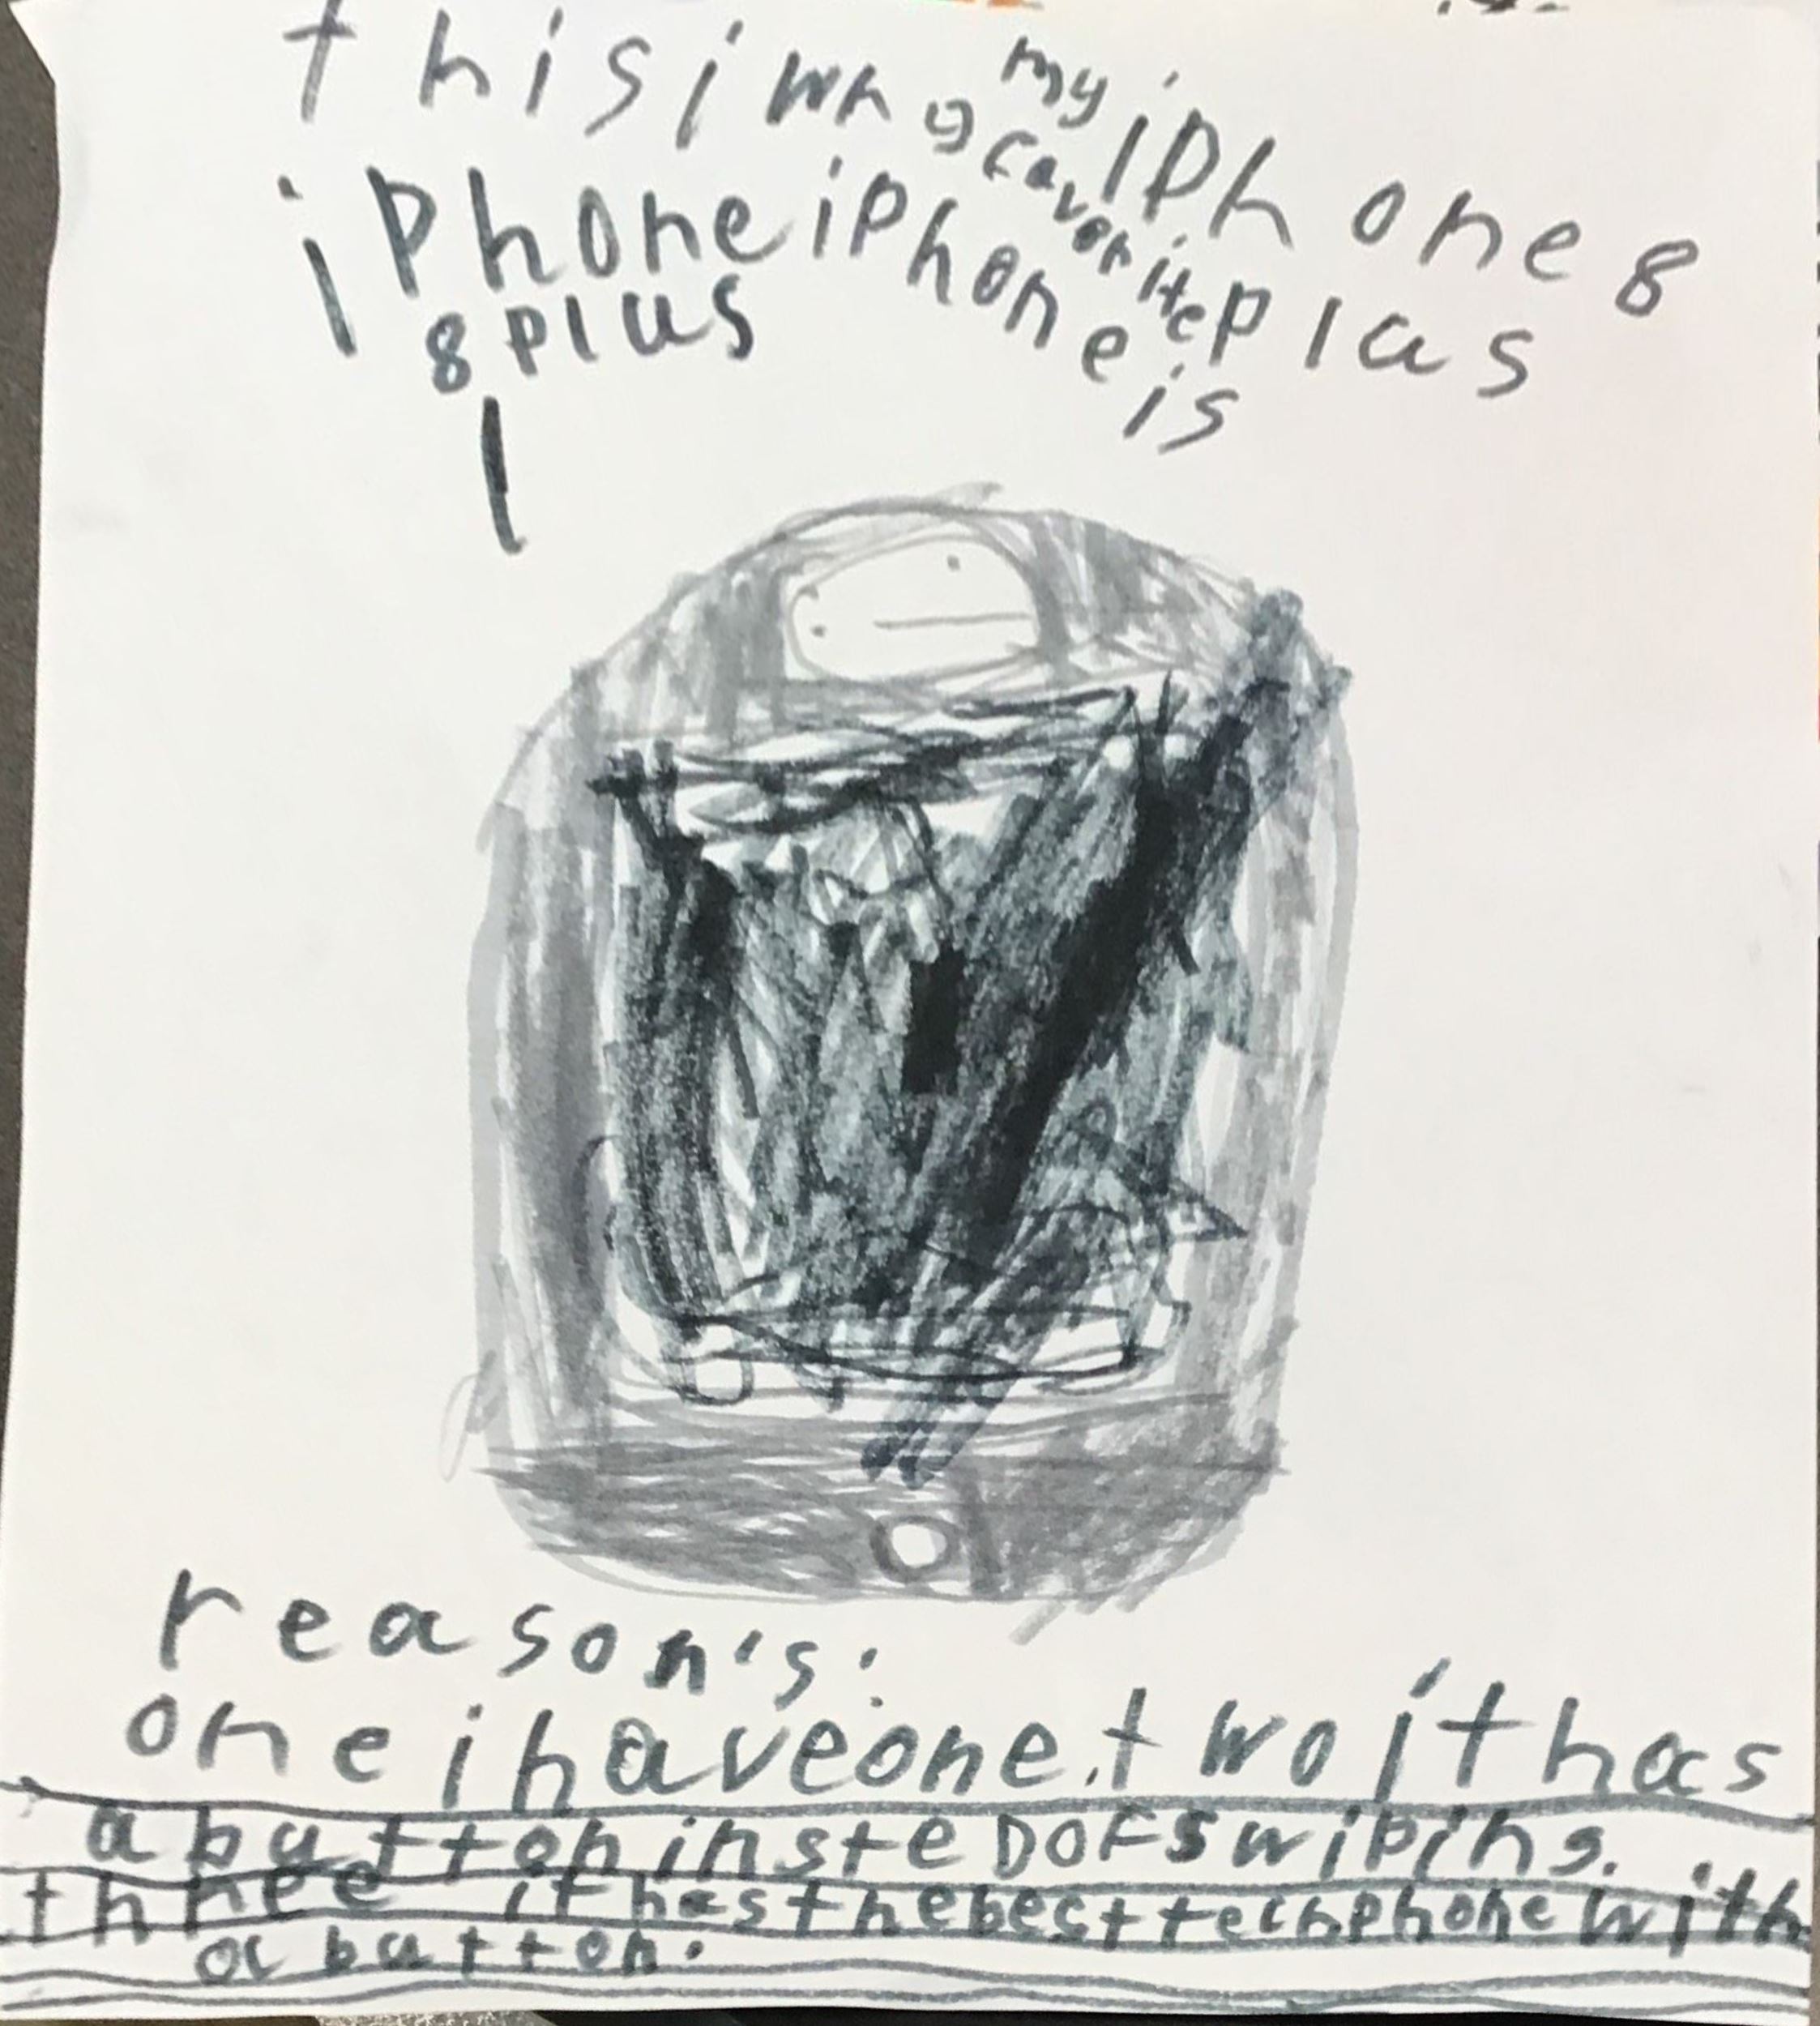 this i why my
favorite
iphone is
iphone 8
plus
iphone
8 plus
reason's:
one i have one. two it has
a button insteD oF swiping.
three it has the best tech phone with
a button.